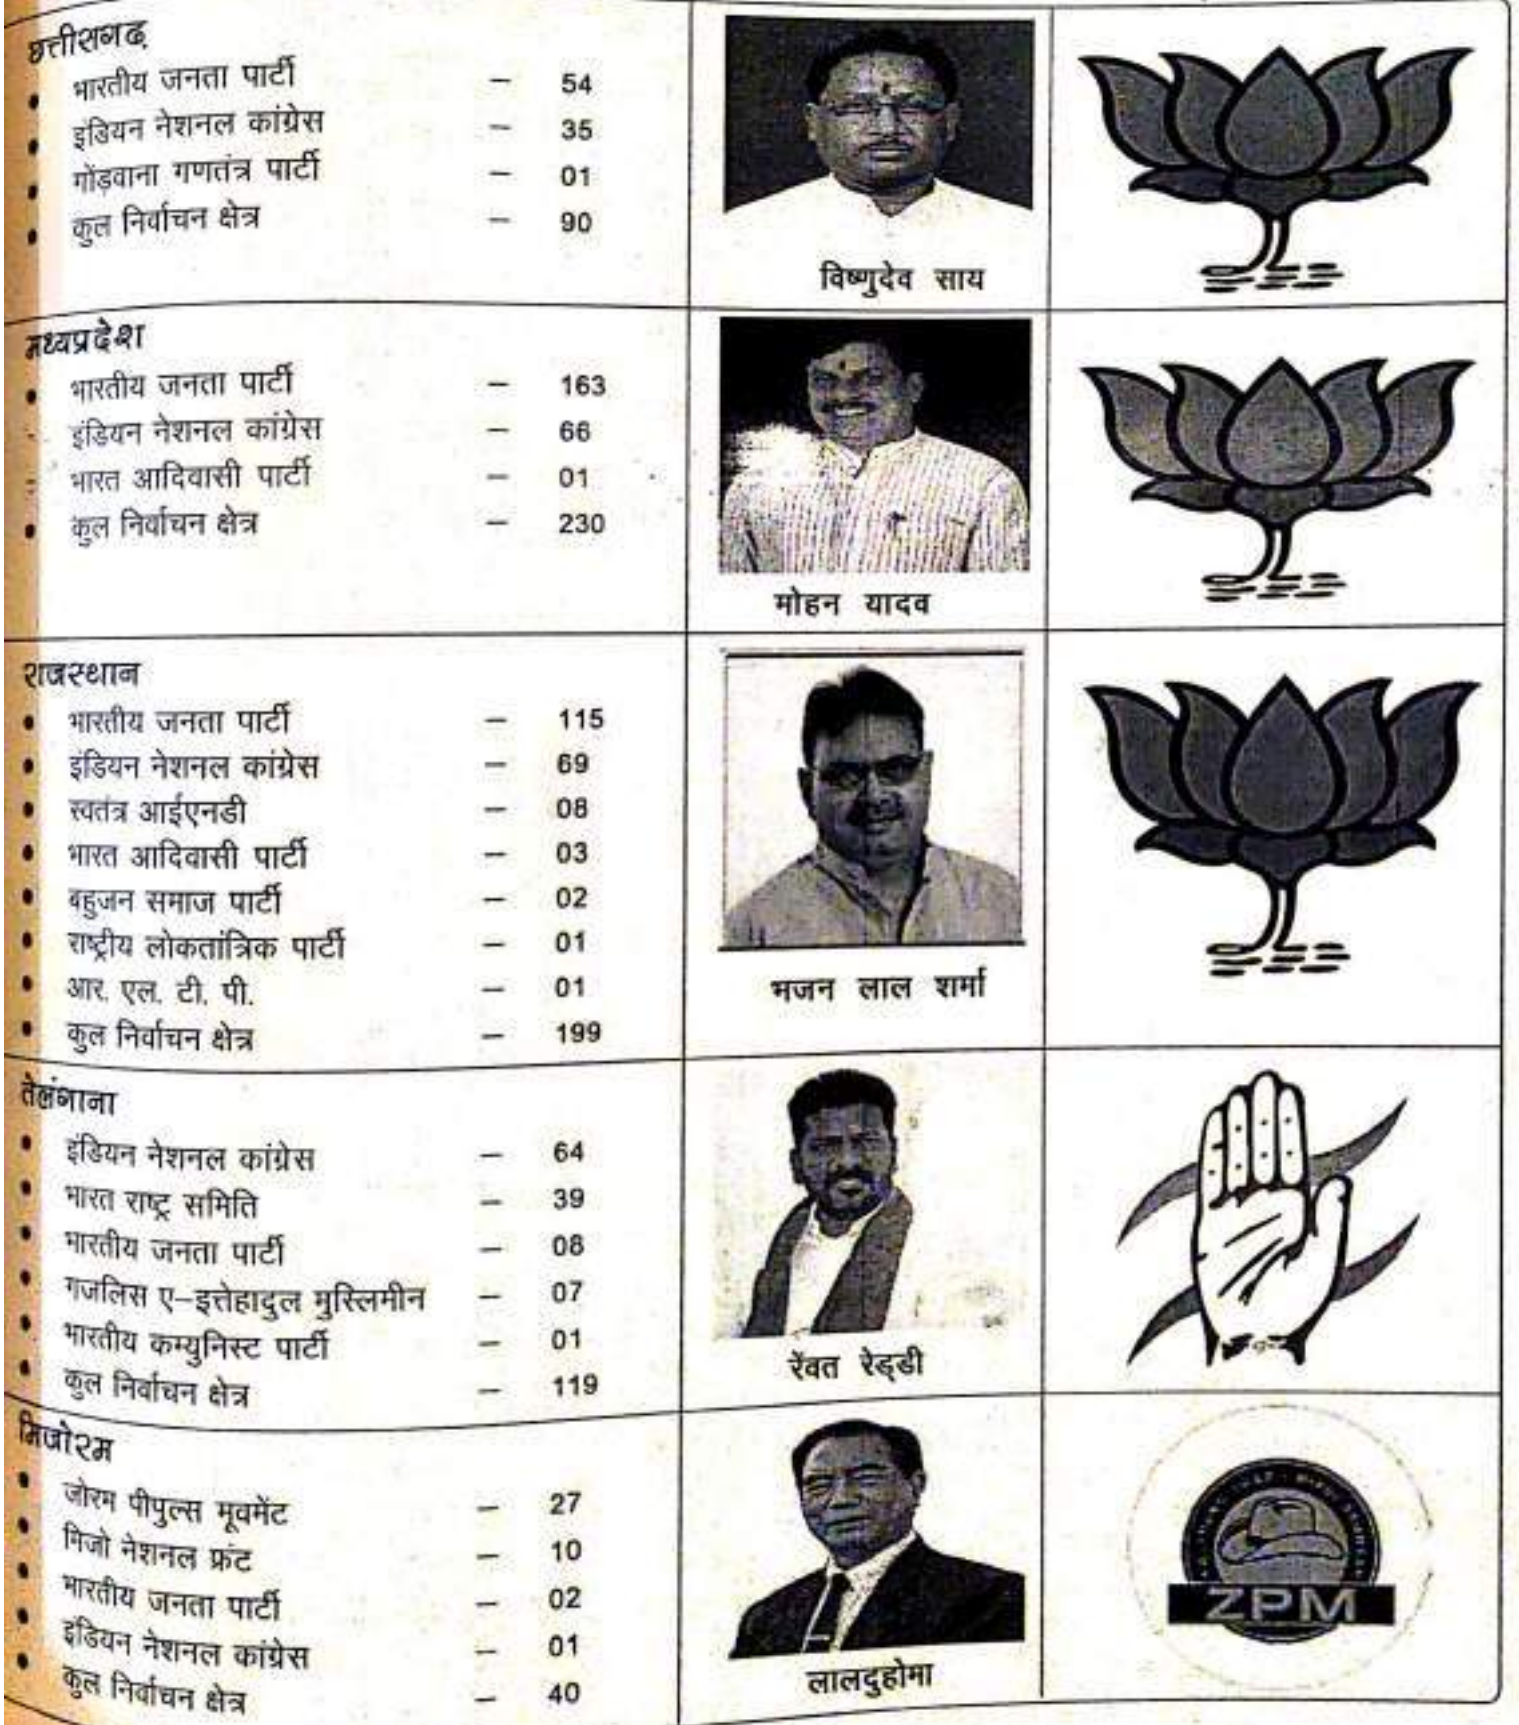 छत्तीसगढ़
• भारतीय जनता पार्टी – 54
• इंडियन नेशनल कांग्रेस – 35
• गोंड़वाना गणतंत्र पार्टी – 01
• कुल निर्वाचन क्षेत्र – 90
विष्णुदेव साय
मध्यप्रदेश
• भारतीय जनता पार्टी – 163
• इंडियन नेशनल कांग्रेस – 66
• भारत आदिवासी पार्टी – 01
• कुल निर्वाचन क्षेत्र – 230
मोहन यादव
राजस्थान
• भारतीय जनता पार्टी – 115
• इंडियन नेशनल कांग्रेस – 69
• स्वतंत्र आईएनडी – 08
• भारत आदिवासी पार्टी – 03
• बहुजन समाज पार्टी – 02
• राष्ट्रीय लोकतांत्रिक पार्टी – 01
• आर. एल. टी. पी. – 01
• कुल निर्वाचन क्षेत्र – 199
भजन लाल शर्मा
तेलंगाना
• इंडियन नेशनल कांग्रेस – 64
• भारत राष्ट्र समिति – 39
• भारतीय जनता पार्टी – 08
• गजलिस ए–इत्तेहादुल मुस्लिमीन – 07
• भारतीय कम्युनिस्ट पार्टी – 01
• कुल निर्वाचन क्षेत्र – 119
रेंवत रेड्डी
मिजोरम
• जोरम पीपुल्स मूवमेंट – 27
• मिजो नेशनल फ्रंट – 10
• भारतीय जनता पार्टी – 02
• इंडियन नेशनल कांग्रेस – 01
• कुल निर्वाचन क्षेत्र – 40
लालदुहोमा
ZPM